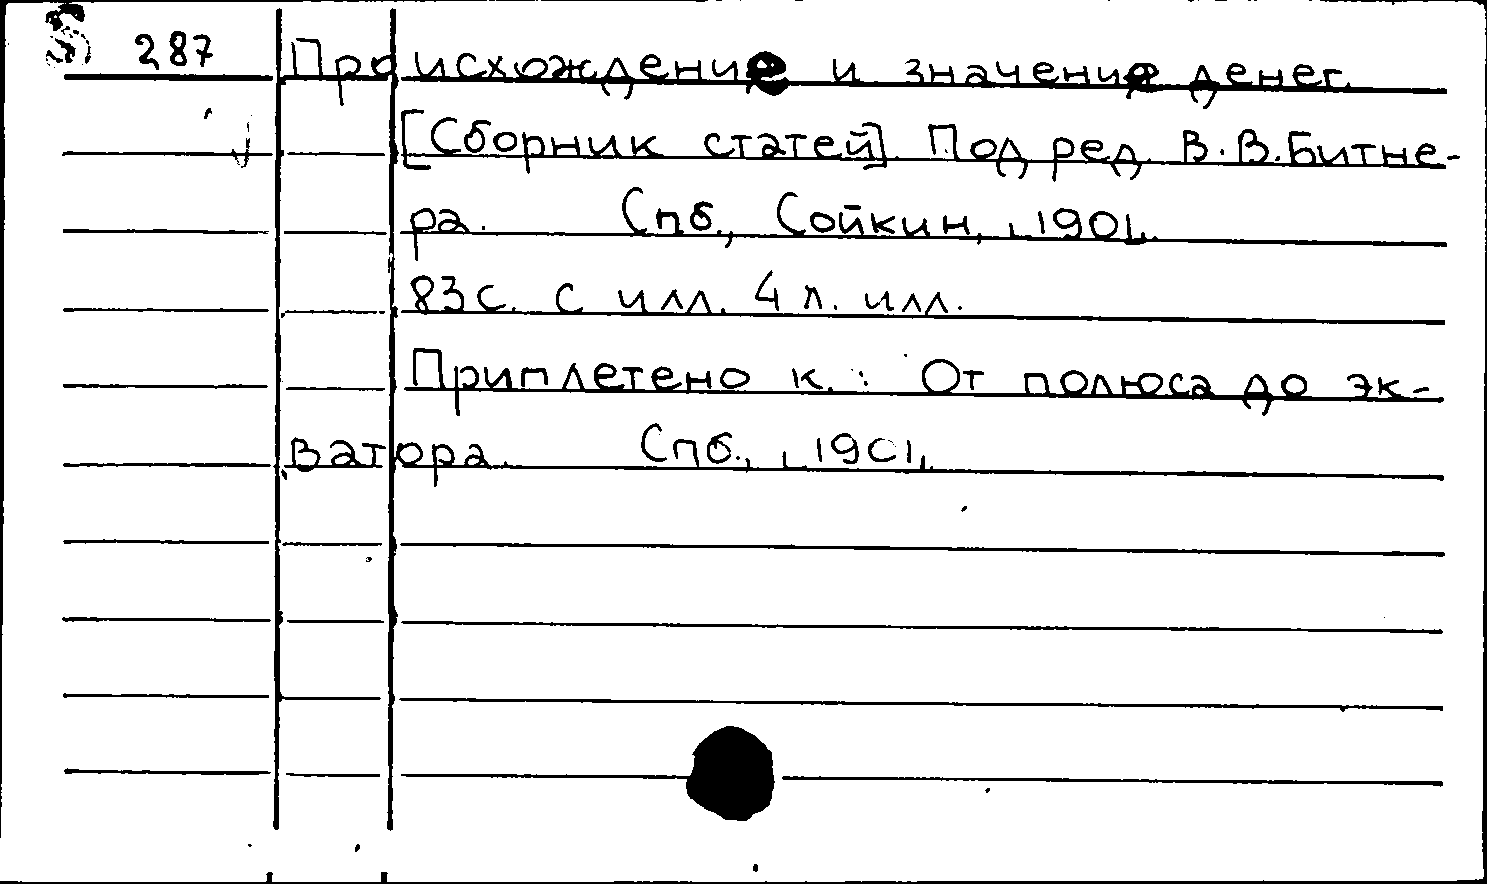 287 Происхождение и значение денег.
[Сборник статей]. Под ред. В.В.Битне-
ра. Спб., Сойкин, 1901.
83 с. с илл. 4 л. илл.
Приплетено к.: От полюса до эк-
ватора. Спб., 1901.